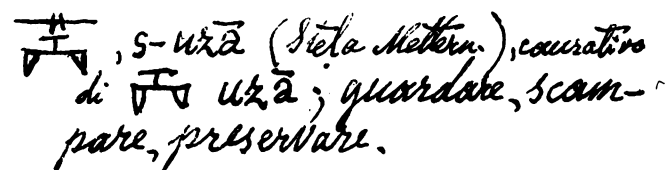 , s-uzā (Stela Mettern.), causativo
di uzā; guardare, scam-
pare, preservare.